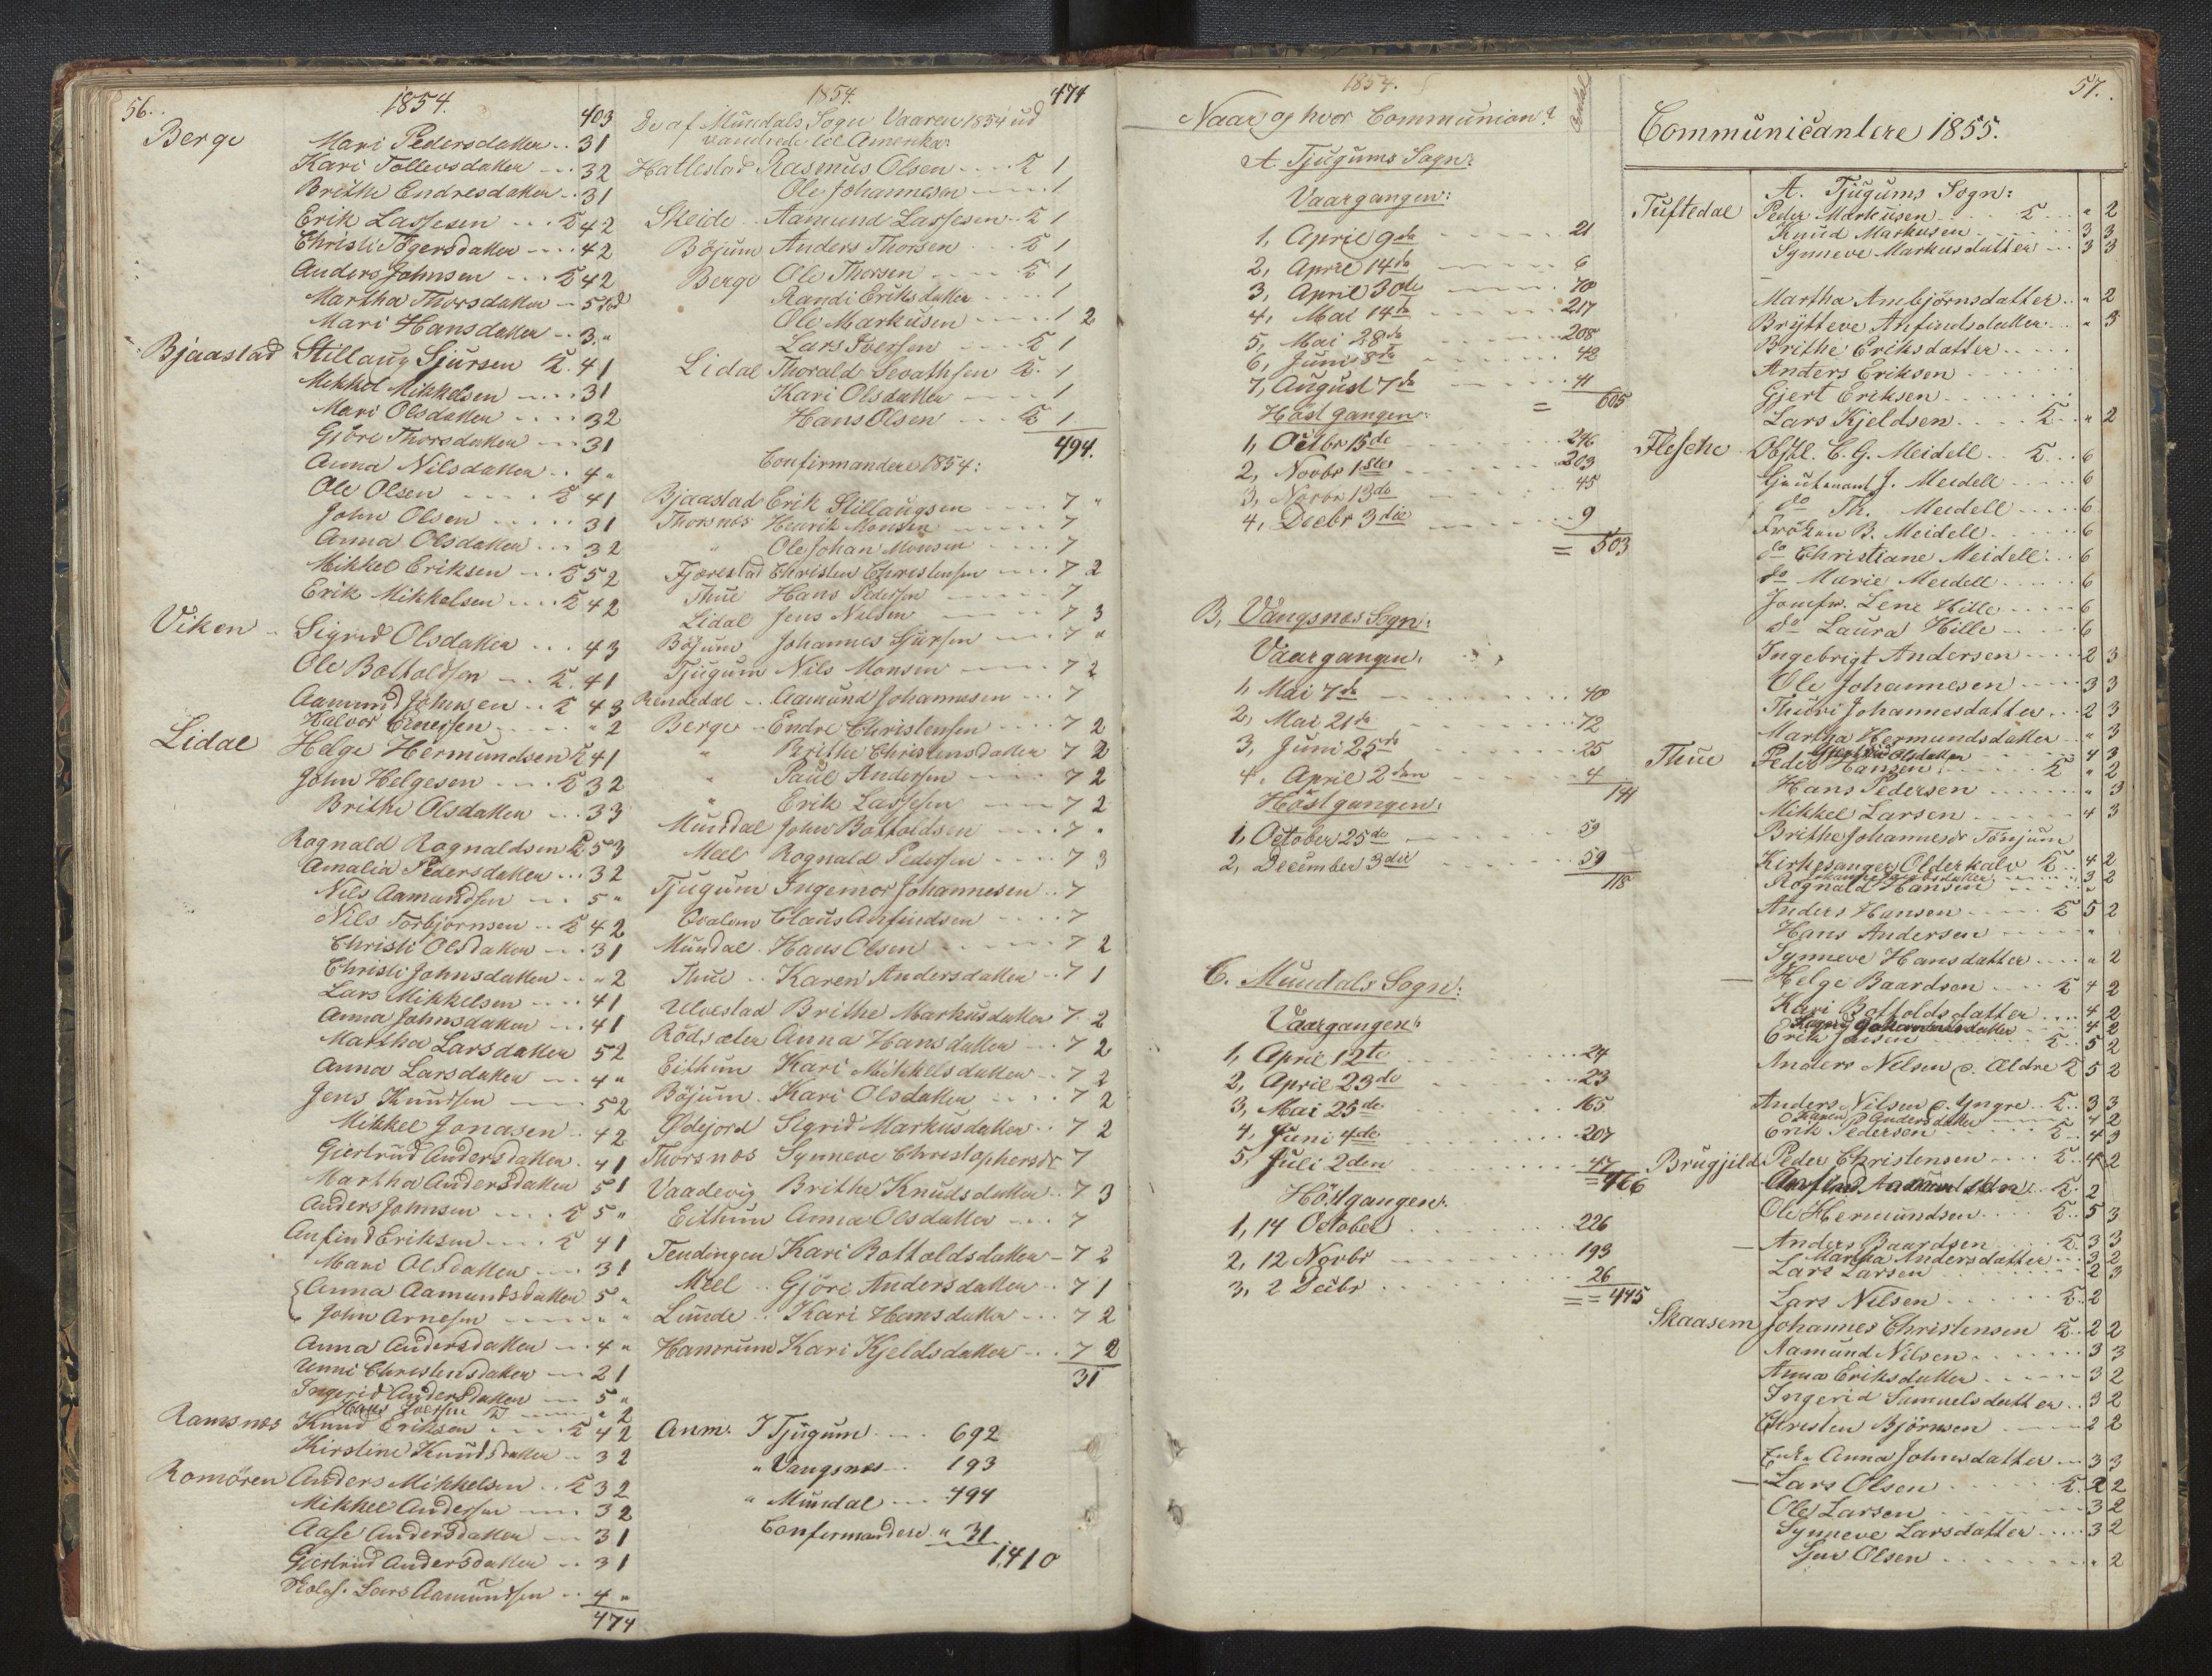 56.
1854.
403
Berge Mari Pedersdatter .. 31
Kari Tollevsdatter ... 32
Brithe Endresdatter .. 31
Erik Lassesen ... 42
Christi Tøgersdatter .... 42
Anders Johnsen ... 42
Martha Thorsdatter - 5
Mari Hansdatter .. 3 "
Bjaastad Stillaug Sjursen 41
Mikkel Mikkelsen .... 31
Mari Olsdatter .... 32
Gjöre Thorsdatter ... 31
Anna Nilsdatter .. 4 "
Ole Olsen .... 41
John Olsen ..... 31
Anna Olsdatter ... 32
Mikkel Eriksen ... 52
Erik Mikkelsen .... 42
Viken Sigrid Olsdatter ... 43
Ole Botholdsen ... 41
Aamund Johnsen .. 43
Halvor Einersen .... " 2
Lidal Helge Hermundsen 41
John Helgesen ... 32
Brithe Olsdatter ... 33
Rognald Rognaldsen 53
Amalia Pedersdatter ... 32
Nils Aamundsen ... 5 "
Nils Torbjørnsen .. 42
Christi Olsdatter ... 31
Christi Johnsdatter .. " 2
Lars Mikkelsen .... 41
Anna Johnsdatter ... 41
Martha Larsdatter 52
Anna Larsdatter ... 4 "
Jens Knudsen .... 52
Mikkel Jonasen .. 42
Giertrud Andersdatter . 41
Martha Andersdatter 51
Anders Johnsen .... 5 "
Anfind Eriksen .... 41
Mari Olsdatter .... 31
Anna Aamundsdatter 5 "
John Arnesen .... " "
Anna Andersdatter ... 4 "
Unni Christensdatter ... 21
Ingerid Andersdatter ... 5 "
Hans Iversen .... " 2
Ramsnæs Knud Eriksen .... 42
Kirstine Knudsdatter .. 32
Romören Anders Mikkelsen .. 32
Mikkel Andersen .... 32
Aase Andersdatter ... 31
Giertrud Andersdatter .. 31
Skolh. Lars Aamundsen .. 4 "
474
1854.
474
De af Mundals Sogn Vaaren 1854 ud
vandrede til Amerika:
Hatlestad Rasmus Olsen .... 1
Ole Johannesen .... 1
Skeide .. Aamund Lassesen .. 1
Böjum Anders Thorsen ... 1
Berge Ole Thorsen .... 1
Randi Eriksdatter .... 1
Ole Markusen .... 1 2
Lars Iversen .... 1
Lidal Thorald Sevathsen . 1
Kari Olsdatter .... 1
Hans Olsen .... 1
494.
Confirmandere 1854:
Bjaastad Erik Stillaugsen .... 7 "
Thorsnæs Henrik Monsen .... 7
" Ole Johan Monsen .... 7
Fjærestad Christen Christensen .... 7 2
Thue Hans Pedersen .... 7
Lidal Jens Nilsen .... 7 3
Böjum Johannes Sjursen .... 7 "
Tjugum Nils Monsen .... 7 2
Rendedal .. Aamund Johannesen ... 7
Berge - Endre Christensen .... 7 2
" Brithe Christensdatter 7 2
" Paul Andersen .... 7 2
" Erik Lassesen .... 7 2
Mundal John Botholdsen .... 7 "
Meel Rognald Pedersen .... 7 3
Tjugum Ingemor Johannesen .. 7
Claus Anfindsen .... 7
Mundal . Hans Olsen .... 7 2
Thue .. Karen Andersdatter .. 7 1
Ulvestad Brithe Markusdatter 7 2
Rödsæter Anna Hansdatter ... 7 2
Eithun Kari Mikkelsdatter .. 7 2
Böjum . Kari Olsdatter .... 7 2
Ødejord Sigrid Markusdatter .. 7 2
Thorsnæs Synneve Christophersdr 7
Vaadevig Brithe Knudsdatter .. 7 3
Eithun Anna Olsdatter ... 7
Tendingen Kari Bottoldsdatter - 7 2
Meel .. Gjöri Andersdatter .. 7 1
Lunde .. Kari Hansdatter ... 7 2
Hamrum Kari Kjeldsdatter .. 7 2
31
Anm. I Tjugum .... 692
" Vangsnæs .. 193
" Mundal ... 494
Confirmandere " 31
1,410
1854.
Naar og hvor Communion?
Antal
A. Tjugums Sogn:
Vaargangen:
1, April 9de .... 21
2, April 14de .... 6
3, April 30de .... 70
4, Mai 14de .... 217
5, Mai 28de .... 208
6, Juni 8de .... 42
7, August 7de .... 41
= 605
Höstgangen:
1, Octbr 15de .... 246
2, Novbr 1ste .... 203
3, Novbr 13de .... 45
4, Decbr 3die .... 9
= 503
B, Vangsnes Sogn:
Vaargangen:
1, Mai 7de .... 40
2, Mai 21de .... 72
3, Juni 25de .... 25
4, April 2den .... 4
141
Höstgangen:
1, October 25de .... 59
2, December 3die .... 59
118
C. Mundals Sogn:
Vaargangen:
1, April 12te .... 24
2, April 23de .... 23
3, Mai 25de .... 165
4, Juni 4de .... 207
5, Juli 2den .... 47
= 466
Höstgangen:
1, 14 October .... 226
2, 12 Novbr .... 193
3, 2 Decbr .... 26
== 445
57.
Communicantere 1855.
A. Tjugums Sogn:
Tuftedal Peder Markusen .... " 2
Knud Markusen .... 3 3
Synneve Markusdatter ... 3 3
Martha Ambjörnsdatter .. " 2
Brytteve Anfindsdatter .. " 3
Brithe Eriksdatter ....
Anders Eriksen ....
Gjert Eriksen ....
Lars Kjeldsen .... " 2
Flesche Obstl. C. G. Meidell .. 6
Lieutenant J. Meidell .... 6
do Th. Meidell .... 6
Fröken B. Meidell .... 6
do Christiane Meidell .. 6
do Marie Meidell .... 6
Jomfr. Lene Hille .... 6
do Laura Hille .... 6
Ingebrigt Andersen .... 2 3
Ole Johannesen .... 3 3
Thuri Johannesdatter .. 2 3
Martha Hermundsdatter .. " 3
Giertrud Olsdatter .... 4 3
Thue Peder Hansen .... " 2
Hans Pedersen .... " 3
Mikkel Larsen .... 4 3
Brithe Johannesdr Tönjum
Kirkesanger Olderkalv .. 4 2
.... 3 2
Rognald Hansen .... "
Anders Hansen .... 5 2
Hans Andersen .... "
Synneve Hansdatter .... " 2
Helge Baardsen .... 4 2
Kari Botholdsdatter .... 4 2
Johannesdatter .... 4 2
Erik .... 5 2
Anders Nilsen d. Ældre 5 2
Anders Nilsen d. Yngre .. 3 3
Karen Andersdatter .... 4 2
Erik Pedersen .... 4 3
Brugjeld Peder Christensen .... 4 2
Anfind Aamundsen .. 2
Ole Hermundsen .... 5 3
Anders Baardsen .... 3 3
Martha Andersdatter .. 3 2
Lars Larsen .... 2 3
Lars Nilsen .... 2
Skaasem Johannes Christensen .. 2 2
Aamund Nilsen .... 3 3
Anna Eriksdatter .... 3 2
Ingerid Samuelsdatter .. 3 2
Christen Björnsen .... 2 2
Enke Anna Johnsdatter ... 3 3
Lars Olsen .... 2 2
Ole Larsen .... 3 2
Synneve Larsdatter .... 3 2
Sjur Olsen .... " 2